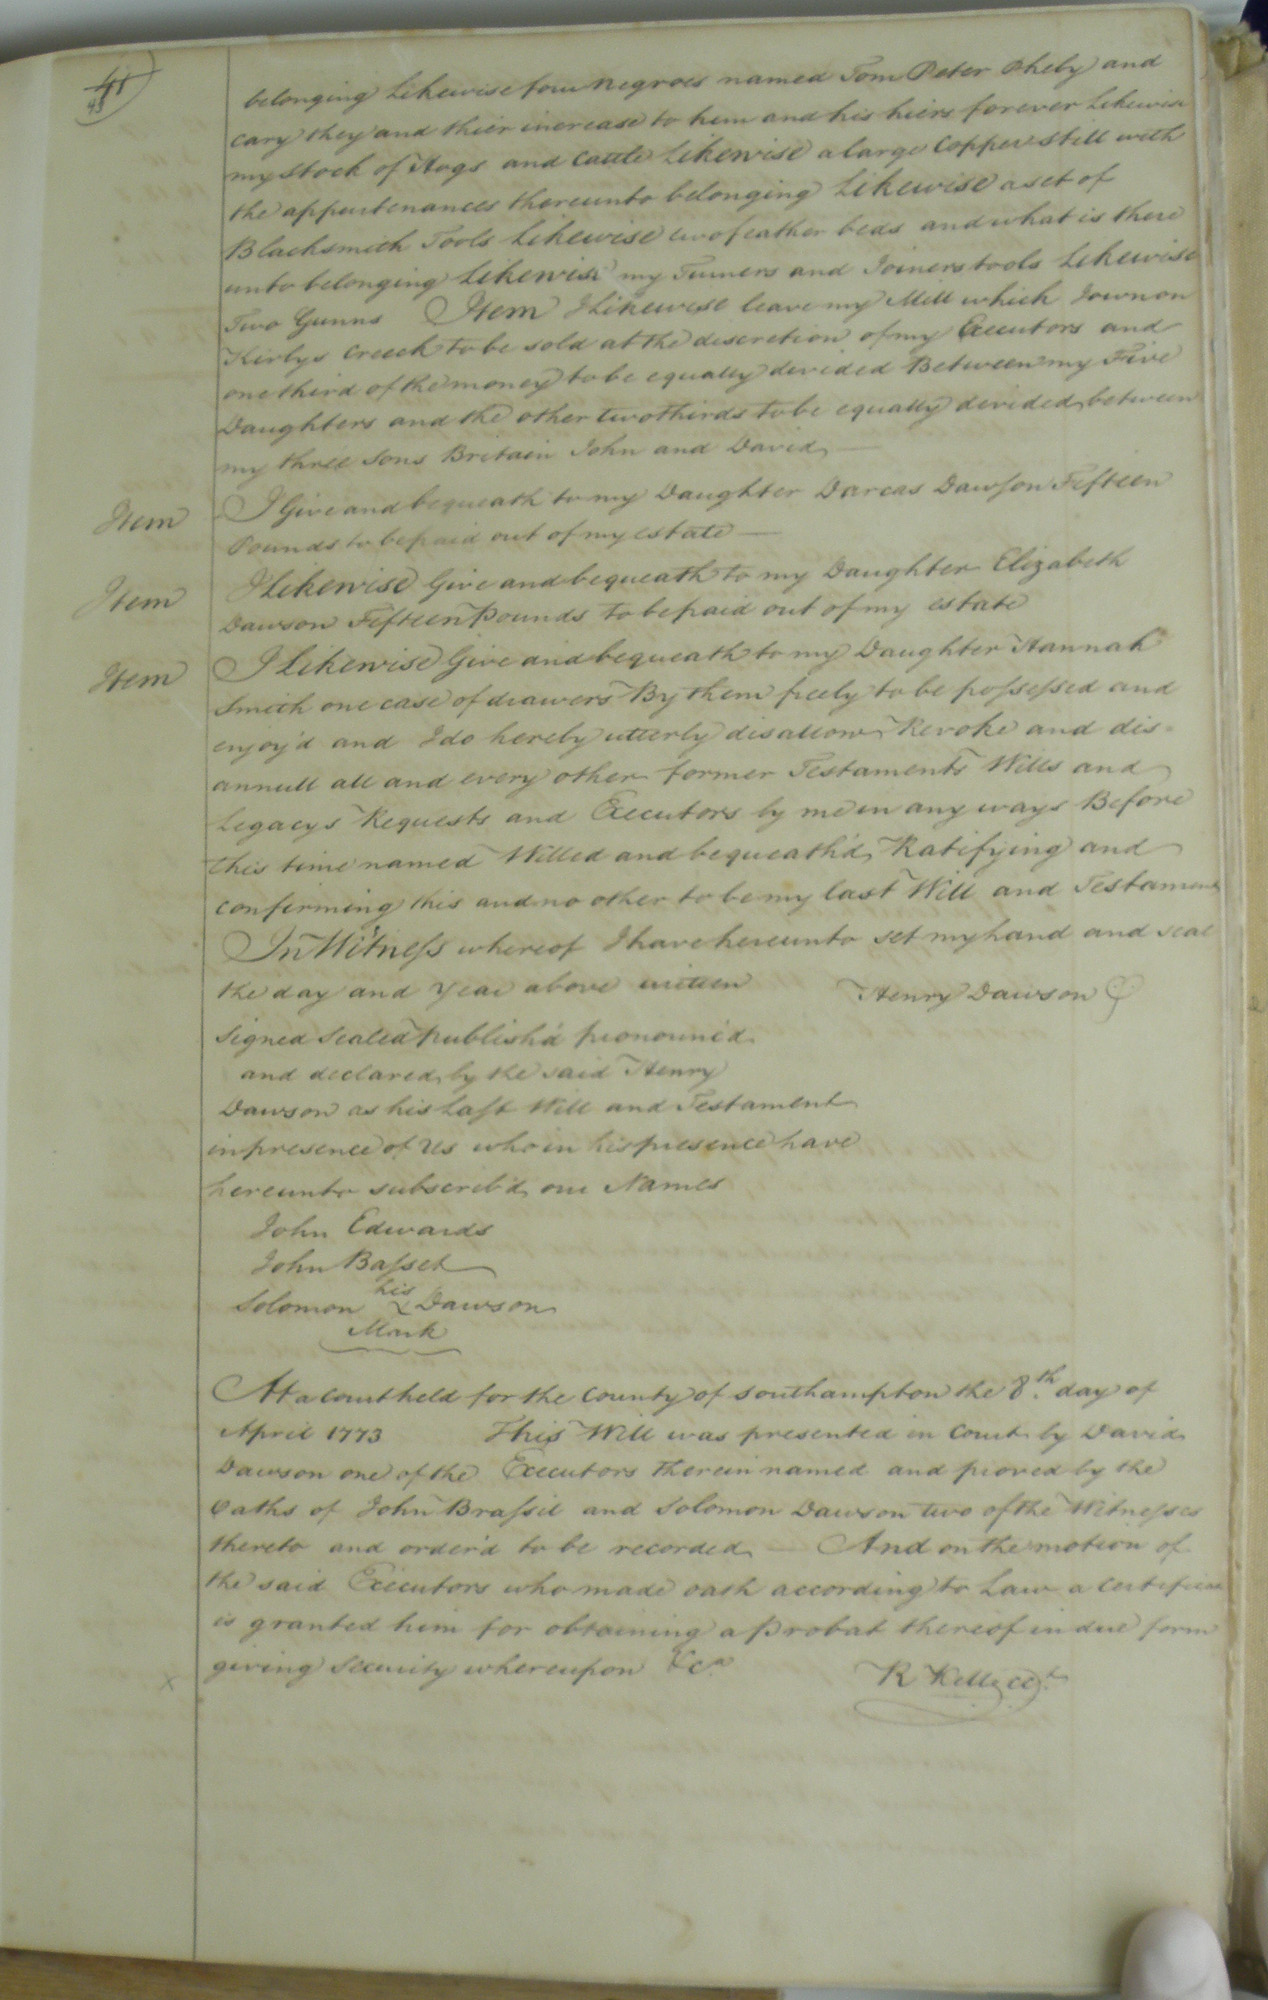 41
43
belonging Likewise four negroes named Tom Peter Pheby and
cary they and thier increase to him and his hiers forever Likewise
my stock of Hogs and Cattle Likewise a large Copper Still with
the appurtenances thereunto belonging Likewise a set of
Blacksmith Tools Likewise two feather beds and what is there
unto belonging Likewise my Turners and Joiners tools Likewise
Two Gunns Item I Likewise leave my Mill which I own on
Kirbys Creeck to be sold at the descretion of my Executors and
one third of the money to be equally devided Between my Five
Daughters and the other two thirds to be equally devided between
my three Sons Britain John and David
Item I Give and bequeath to my Daughter Darcas Dawson Fifteen
Pounds to be paid out of my estate
Item I Likewise Give and bequeath to my Daughter Elizabeth
Dawson Fifteen Pounds to be paid out of my estate
Item I Likewise Give and bequeath to my Daughter Hannah
Smith one case of drawers By them freely to be possessed and
enjoy'd and I do hereby utterly disallow Revoke and dis=
annull all and every other former Testaments Wills and
Legacys Requests and Executors by me in any ways Before
this time named Willed and bequeath'd Ratifying and
confirming this and no other to be my last Will and Testament
In Witness whereof I have hereunto set my hand and seal
the day and Year above written Henry Dawson
Signed Sealed publish'd pronounc'd
and declared by the said Henry
Dawson as his Last Will and Testament
in presence of Us who in his presence have
hereunto subscrib'd our Names
John Edwards
John Basset
his
Solomon X Dawson
Mark
At a Court held for the County of Southampton the 8th day of
April 1773 This Will was presented in Court by David
Dawson one of the Executors therein named and proved by the
Oaths of John Brassil and Solomon Dawson two of the Witnesses
thereto and order'd to be recorded And on the motion of
the said Executors who made oath according to Law a certificate
is granted him for obtaining a Probat thereof in due form
giving Security whereupon &ca
x R Kello CCt